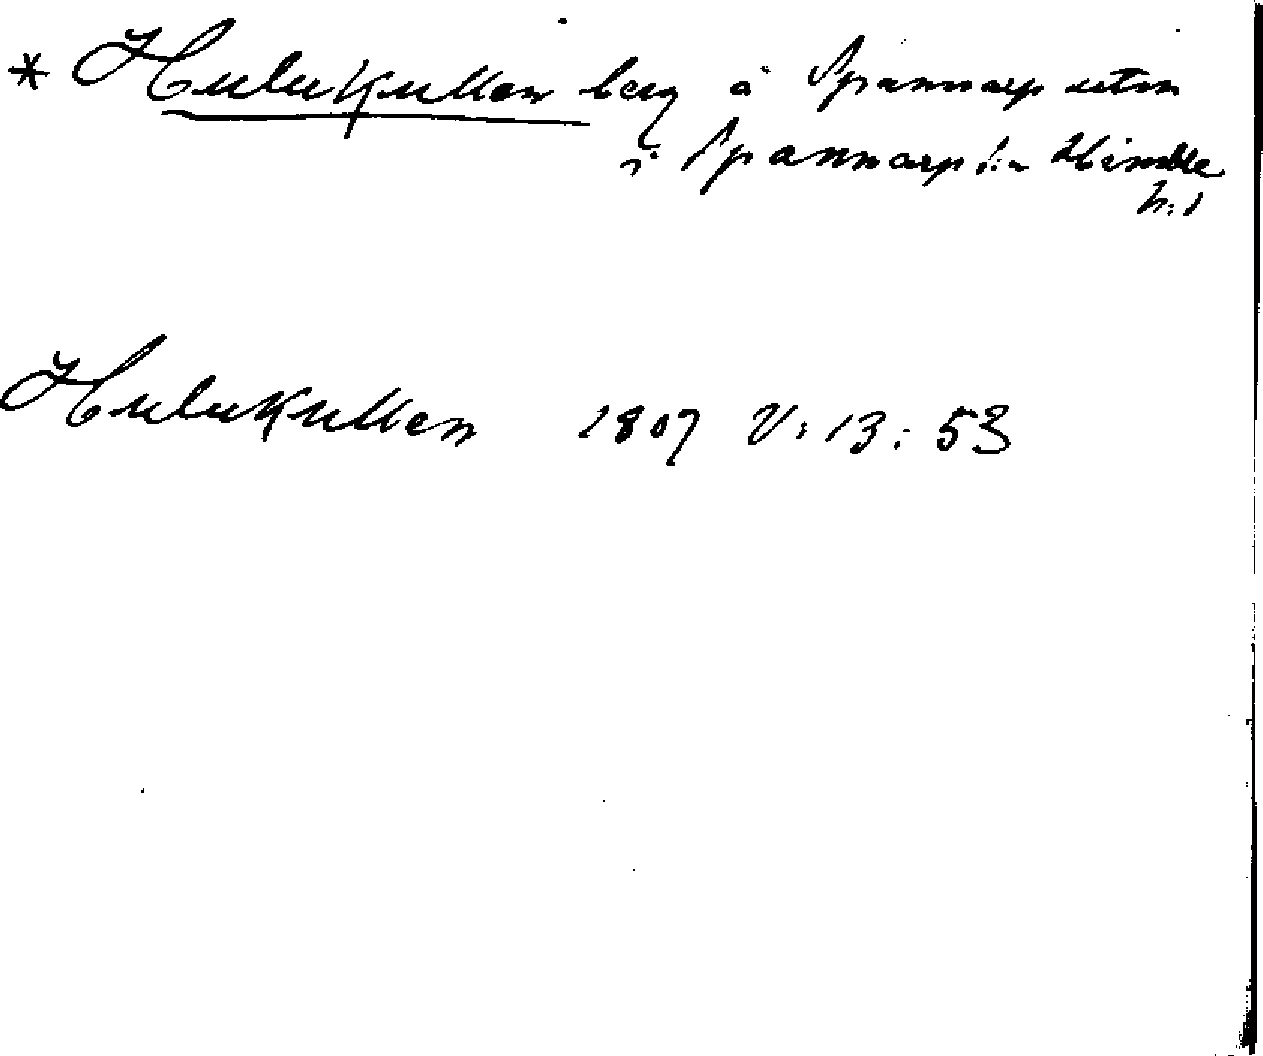 * Hulukullen berg å Spannarp utm
i Spannarp sn Himble
h:d
Hulukullen 1807 V: 13: 53